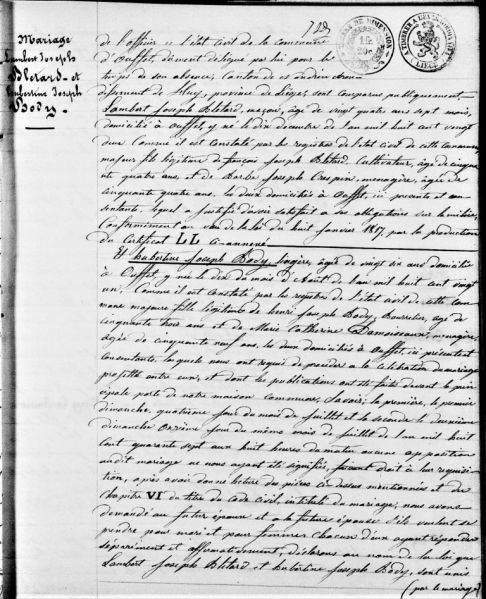 Mariage
Lambert Joseph
Bletard et
Hubertine Joseph
Body.
TIMBRE DE DIMENSION
LIEGE
de l'officier de l'état civil de la commune
d'Ouffet, dûment délégué par lui pour le
temps de son absence, Canton de et arron
dissement de Huy, province de Liége, sont comparus publiquement
Lambert Joseph Bletard, maçon, âgé de vingt quatre ans sept mois,
domicilié à Ouffet, y né le dix décembre de l'an mil huit cent vingt
deux Comme il est constaté par les registres de l'état civil de cette commune
majeur fils légitime de françois Joseph Bletard, Cultivateur, âgé de cinquan
te quatre ans, et de Barbe Joseph Crespin ménagère, âgée de
cinquante quatre ans, les deux domiciliés à Ouffet, ici présents et con
sentants, lequel a justifié d'avoir satisfait à ses obligations sur la milice,
Conformément au vœu de la loi du huit janvier 1817, par la production
du Certificat LL ci-annexé
Et hubertine Joseph Body, âgée de vingt six ans domiciliée
à Ouffet, y née le dix du mois d'Août de l'an mil huit cent vingt
un, Comme il est constaté par les registres de l'état civil de cette com
mune majeure fille légitime de henri Joseph Body, Bourrelier, âgé de
cinquante trois ans et de Marie Catherine Damoiseaux, ménagère,
âgée de cinquante neuf ans, les deux domiciliés à Ouffet, ici présents et
consentants, lesquels nous ont requis de procéder à la célébration du mariage
projetté entre eux, et dont les publications ont été faites devant la prin
cipale porte de notre maison Commune, Savoir: la première, le premier
dimanche, quatrième jour du mois de juillet et la seconde le deuxième
dimanche onzième jour du même mois de juillet de l'an mil huit
Cent quarante sept aux huit heures du matin aucune opposition
audit mariage ne nous ayant été signifiée, faisant droit à leur requisi
tion, après avoir donné lecture des pièces ci-dessus mentionnées et du
chapitre VI du titre du Code Civil, intitulé du mariage, nous avons
demandé au futur époux et à la future épouse s'ils veulent se
prendre pour mari et pour femme; chacun d'eux ayant répondu
séparément et affirmativement, déclarons au nom de la loi que
Lambert Joseph Bletard et hubertine Joseph Body, sont unis
(par le mariage)